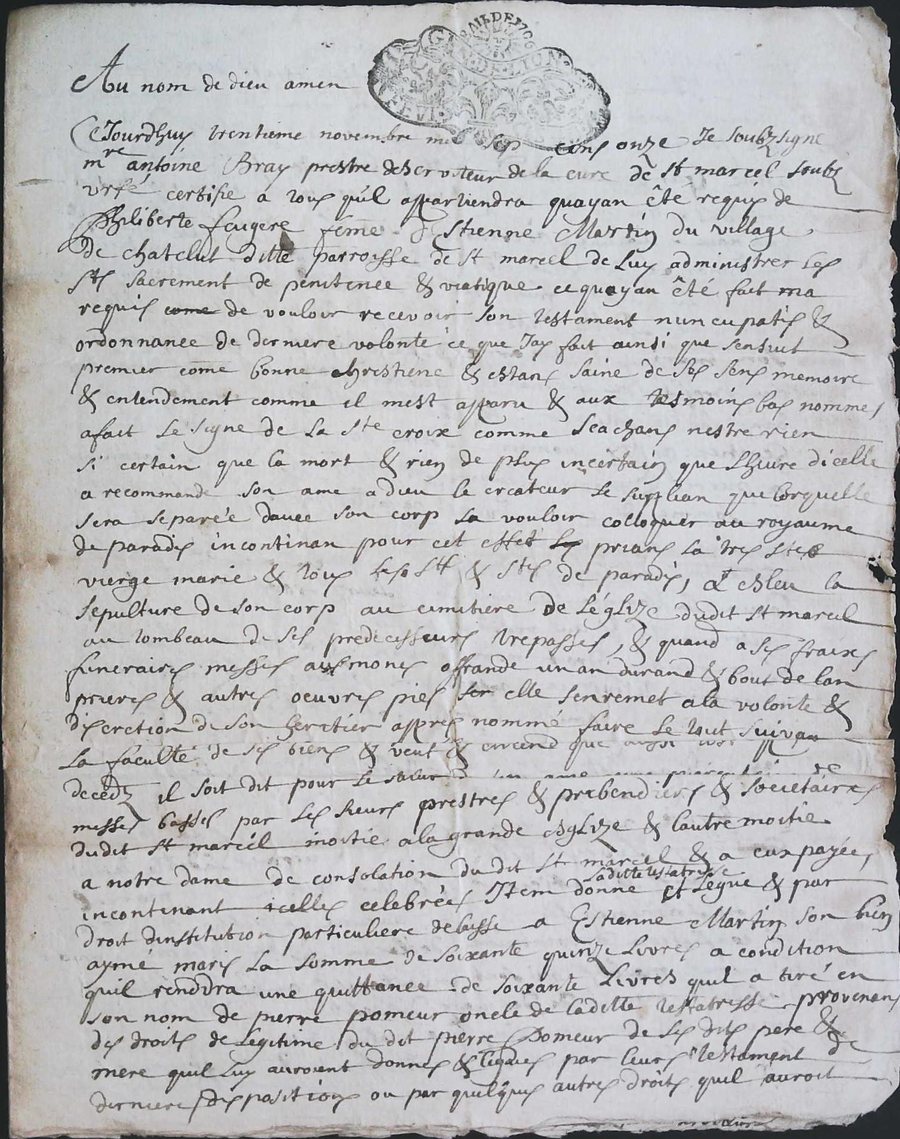 GN. DE LION
Au nom de dieu amen
Cejourdhuy trentieme novembre mil sept cens onze Je soubzsigne
mre antoine Bray prestre deserviteur de la cure de St marcel soubz
urfé certifie a tous quil appartiendra quayan êté requis de
Philiberte feugere feme d'Estienne Martin du village
De chatelut ditte parroisse de St marcel de Luy administrer les
Sts sacrement de penitence & viatique ce quayan êté fait ma
requis come de vouloir recevoir son testament nuncupatif &
ordonnance de derniere volonté ce que Jay fait ainsi que sensuit
premier come bonne chrestiene & estans saine de ses sens memoire
& entendement comme il mest apparu & aux tesmoins bas nommes
a fait le signe de la Ste croix comme scachans nestre rien
si certain que la mort & rien de plus incertain que Lhure dicelle
a recommande son ame a dieu le createur le supplian que lorquelle
sera separée davec son corp la vouloir colloquer au royaume
de paradis incontinan pour cet effet prians la tres Ste
vierge marie & tous les Sts & Stes de paradis, a esleu la
sepulture de son corp au cimitiere de Léglize dudit St marcel
au tombeau de ses predecesseurs trepasses, & quand a ses fraires
funeraires messes aumones offrande un an durand & bout de lan
prieres & autres oeuvres pies elle senremet a la volonte &
discretion de son heretier appres nomme faire le tout suivan
La faculté de ses biens & veut & entend que aussi
decedz il soit dit pour le salut un ame
messes basses par les sieurs prestres & prebendiers & societaires
dudit St marcel moitie a la grande Eglize & lautre moitie
a notre dame de consolation du dit St marcel & a eux payée,
laditte testatresse
incontenant icelles celebrées Item donne et Legue & par
droit dinstitution particuliere delaisse a Estienne Martin son bien
aymé maris La somme de soixante quinze Livres a condition
quil rendra une quittance de soixante Livres quil a tiré en
son nom de pierre pomeur oncle de laditte testatresse provenans
des droits de Legitime du dit pierre Pomeur de ses dits pere &
mere quil Luy auroient donnes & legues par leurs testament de
derniere dispositions ou par quelques autres droits quil auroit